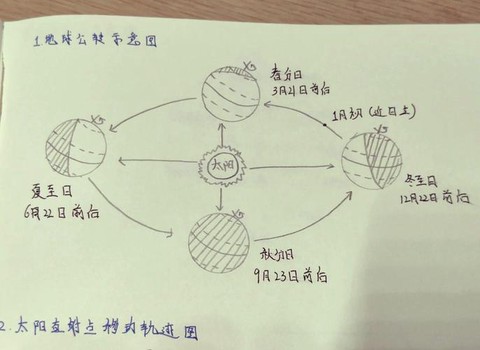 1.地球公转示意图
春分日
3月21日前后
1月初(近日点)
太阳
夏至日
6月22日前后
冬至日
12月22日前后
秋分日
9月23日前后
2.太阳直射点移动轨迹图